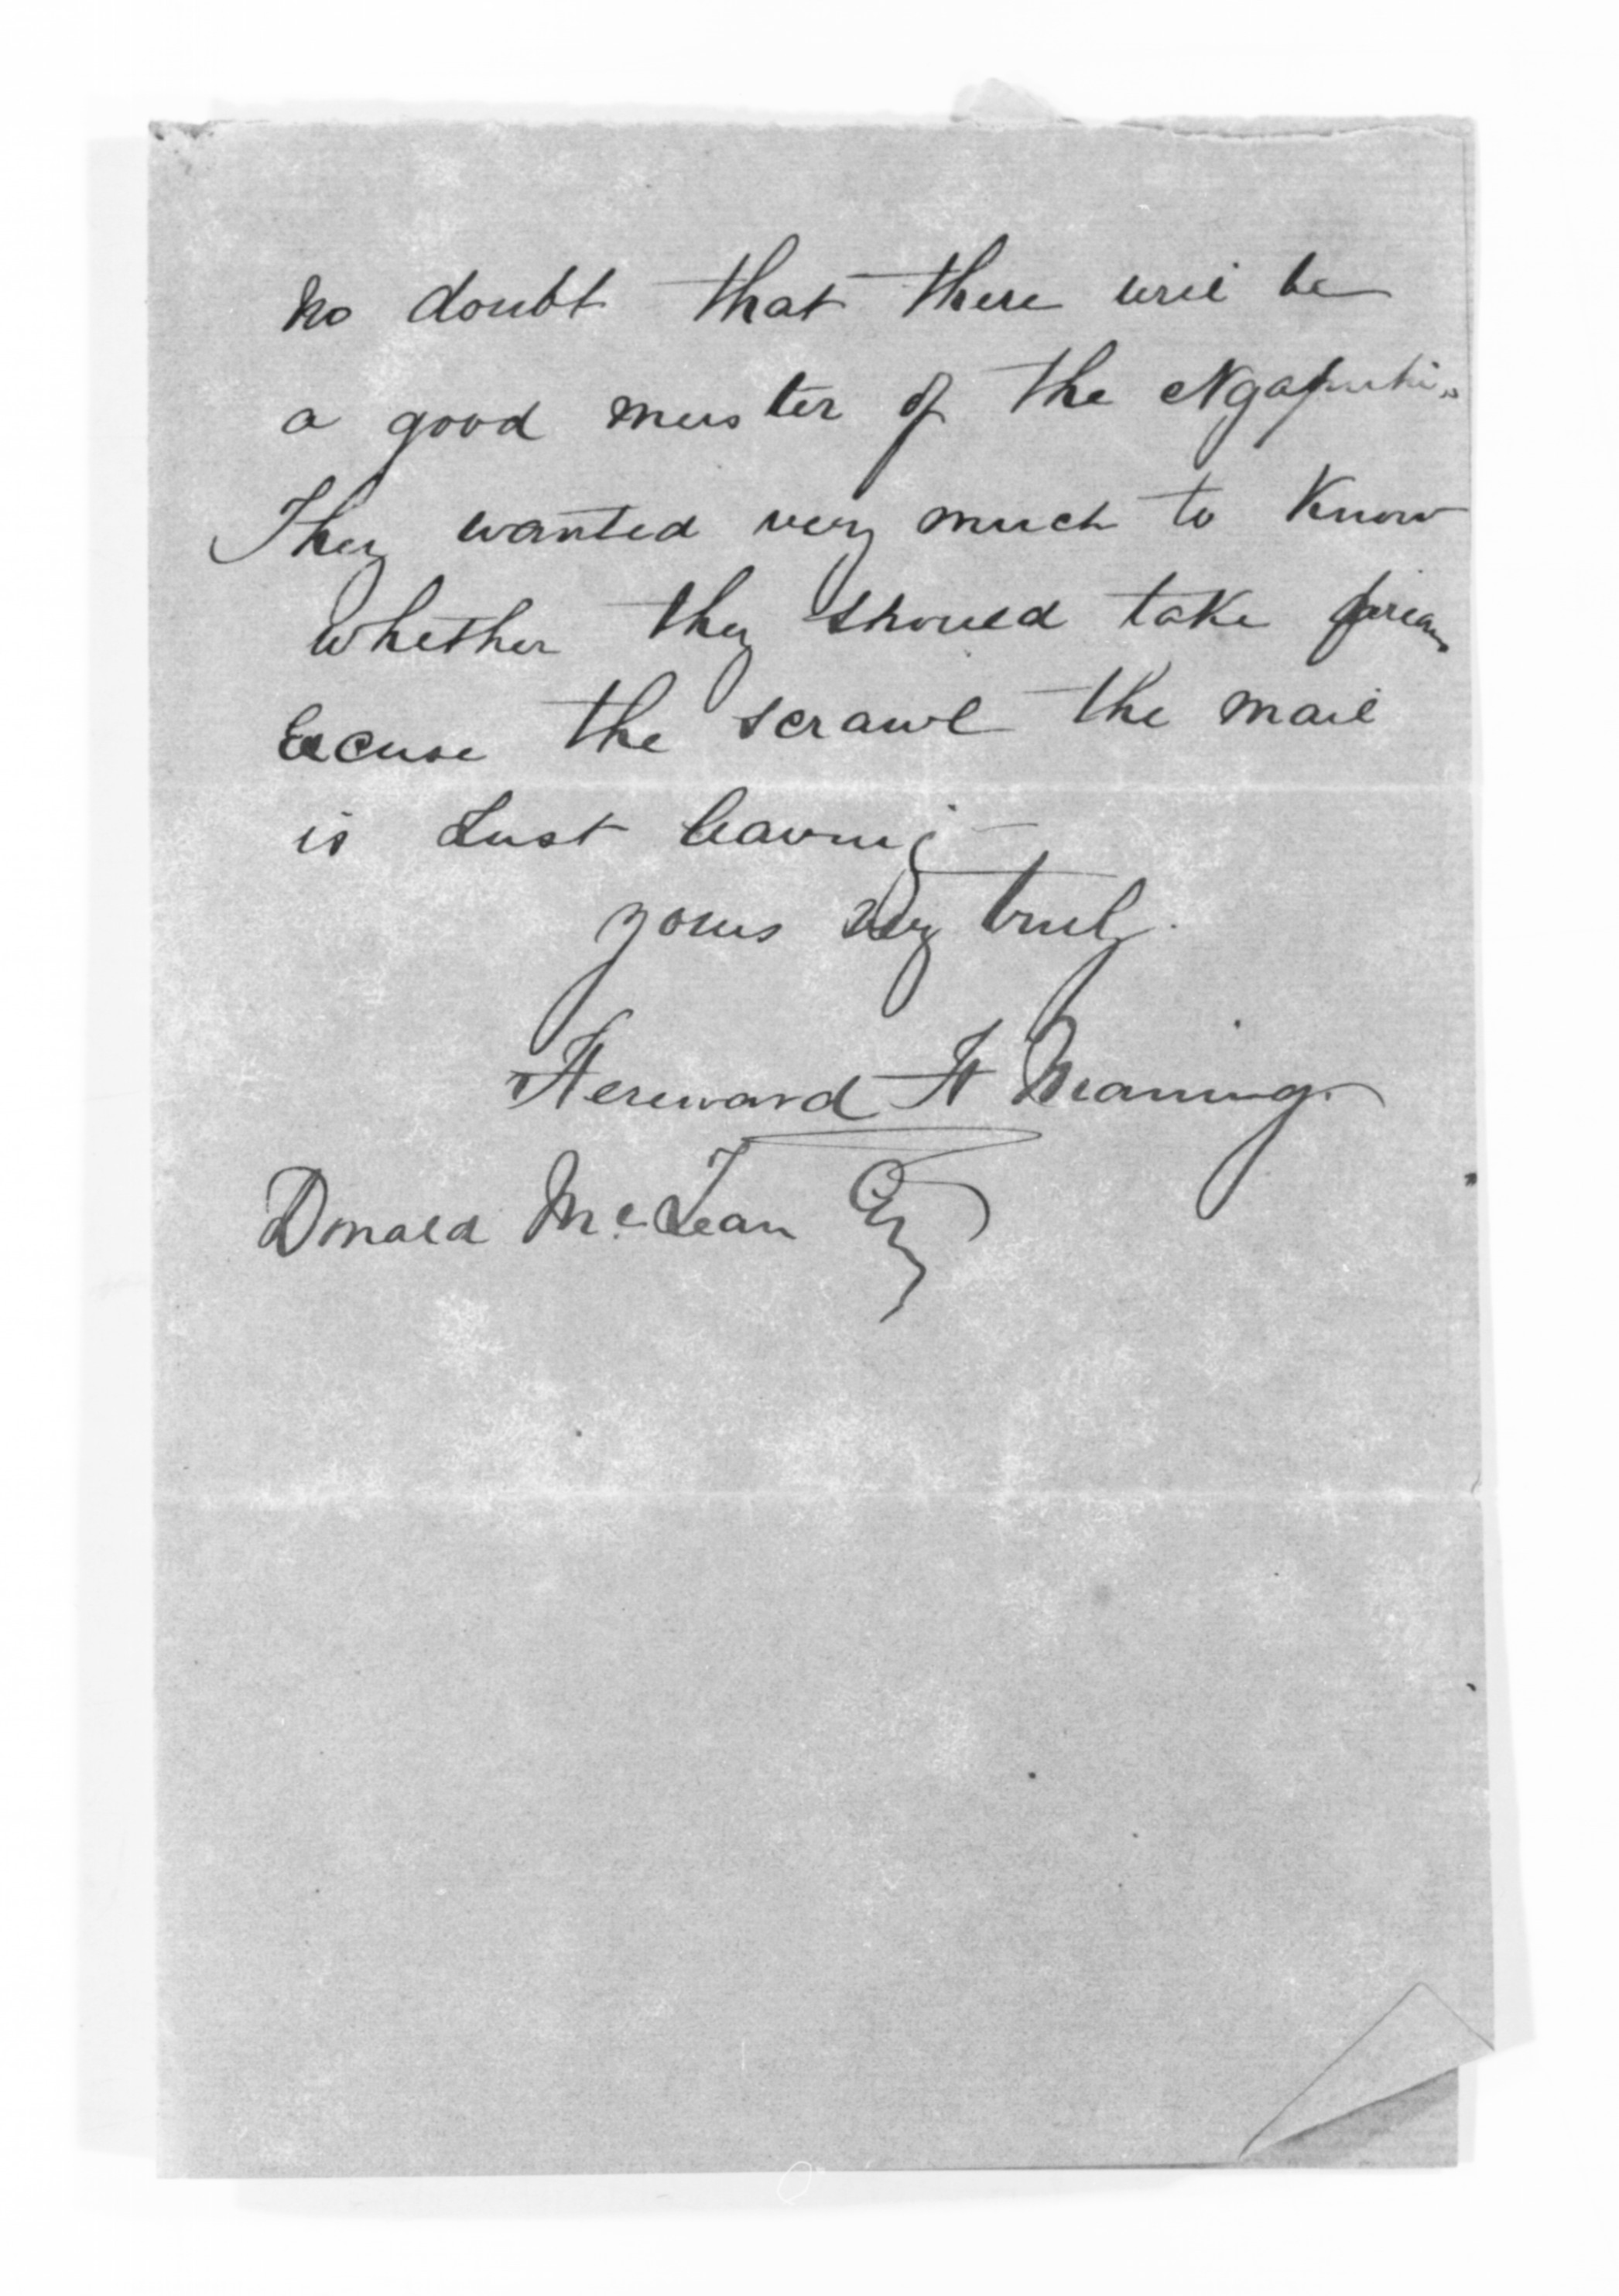 no doubt that there will be
a good muster of the Ngapuhi's
They wanted very much to know
whether they should take
Excuse the scrawl the mail
is Just leaving —
yours very truly.
Donald McLean Esq